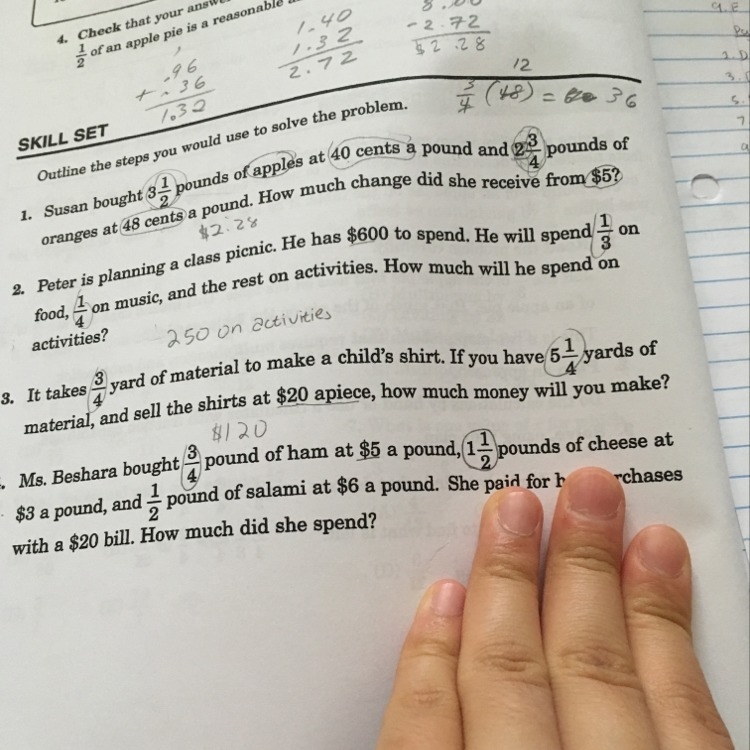 4. Check that your answ
1/2 of an apple pie is a reasonable
.96
+ .36
1.32
1.40
1.32
2.72
- 2.72
$2.28
12
3/4 (48) = 36
SKILL SET
Outline the steps you would use to solve the problem.
1. Susan bought 3 1/2 pounds of apples at 40 cents a pound and 2 3/4 pounds of
oranges at 48 cents a pound. How much change did she receive from $5?
$2.28
2. Peter is planning a class picnic. He has $600 to spend. He will spend 1/3 on
food, 1/4 on music, and the rest on activities. How much will he spend on
activities?
250 on activities
3. It takes 3/4 yard of material to make a child's shirt. If you have 5 1/4 yards of
material, and sell the shirts at $20 apiece, how much money will you make?
$120
. Ms. Beshara bought 3/4 pound of ham at $5 a pound, 1 1/2 pounds of cheese at
$3 a pound, and 1/2 pound of salami at $6 a pound. She paid for h rchases
with a $20 bill. How much did she spend?